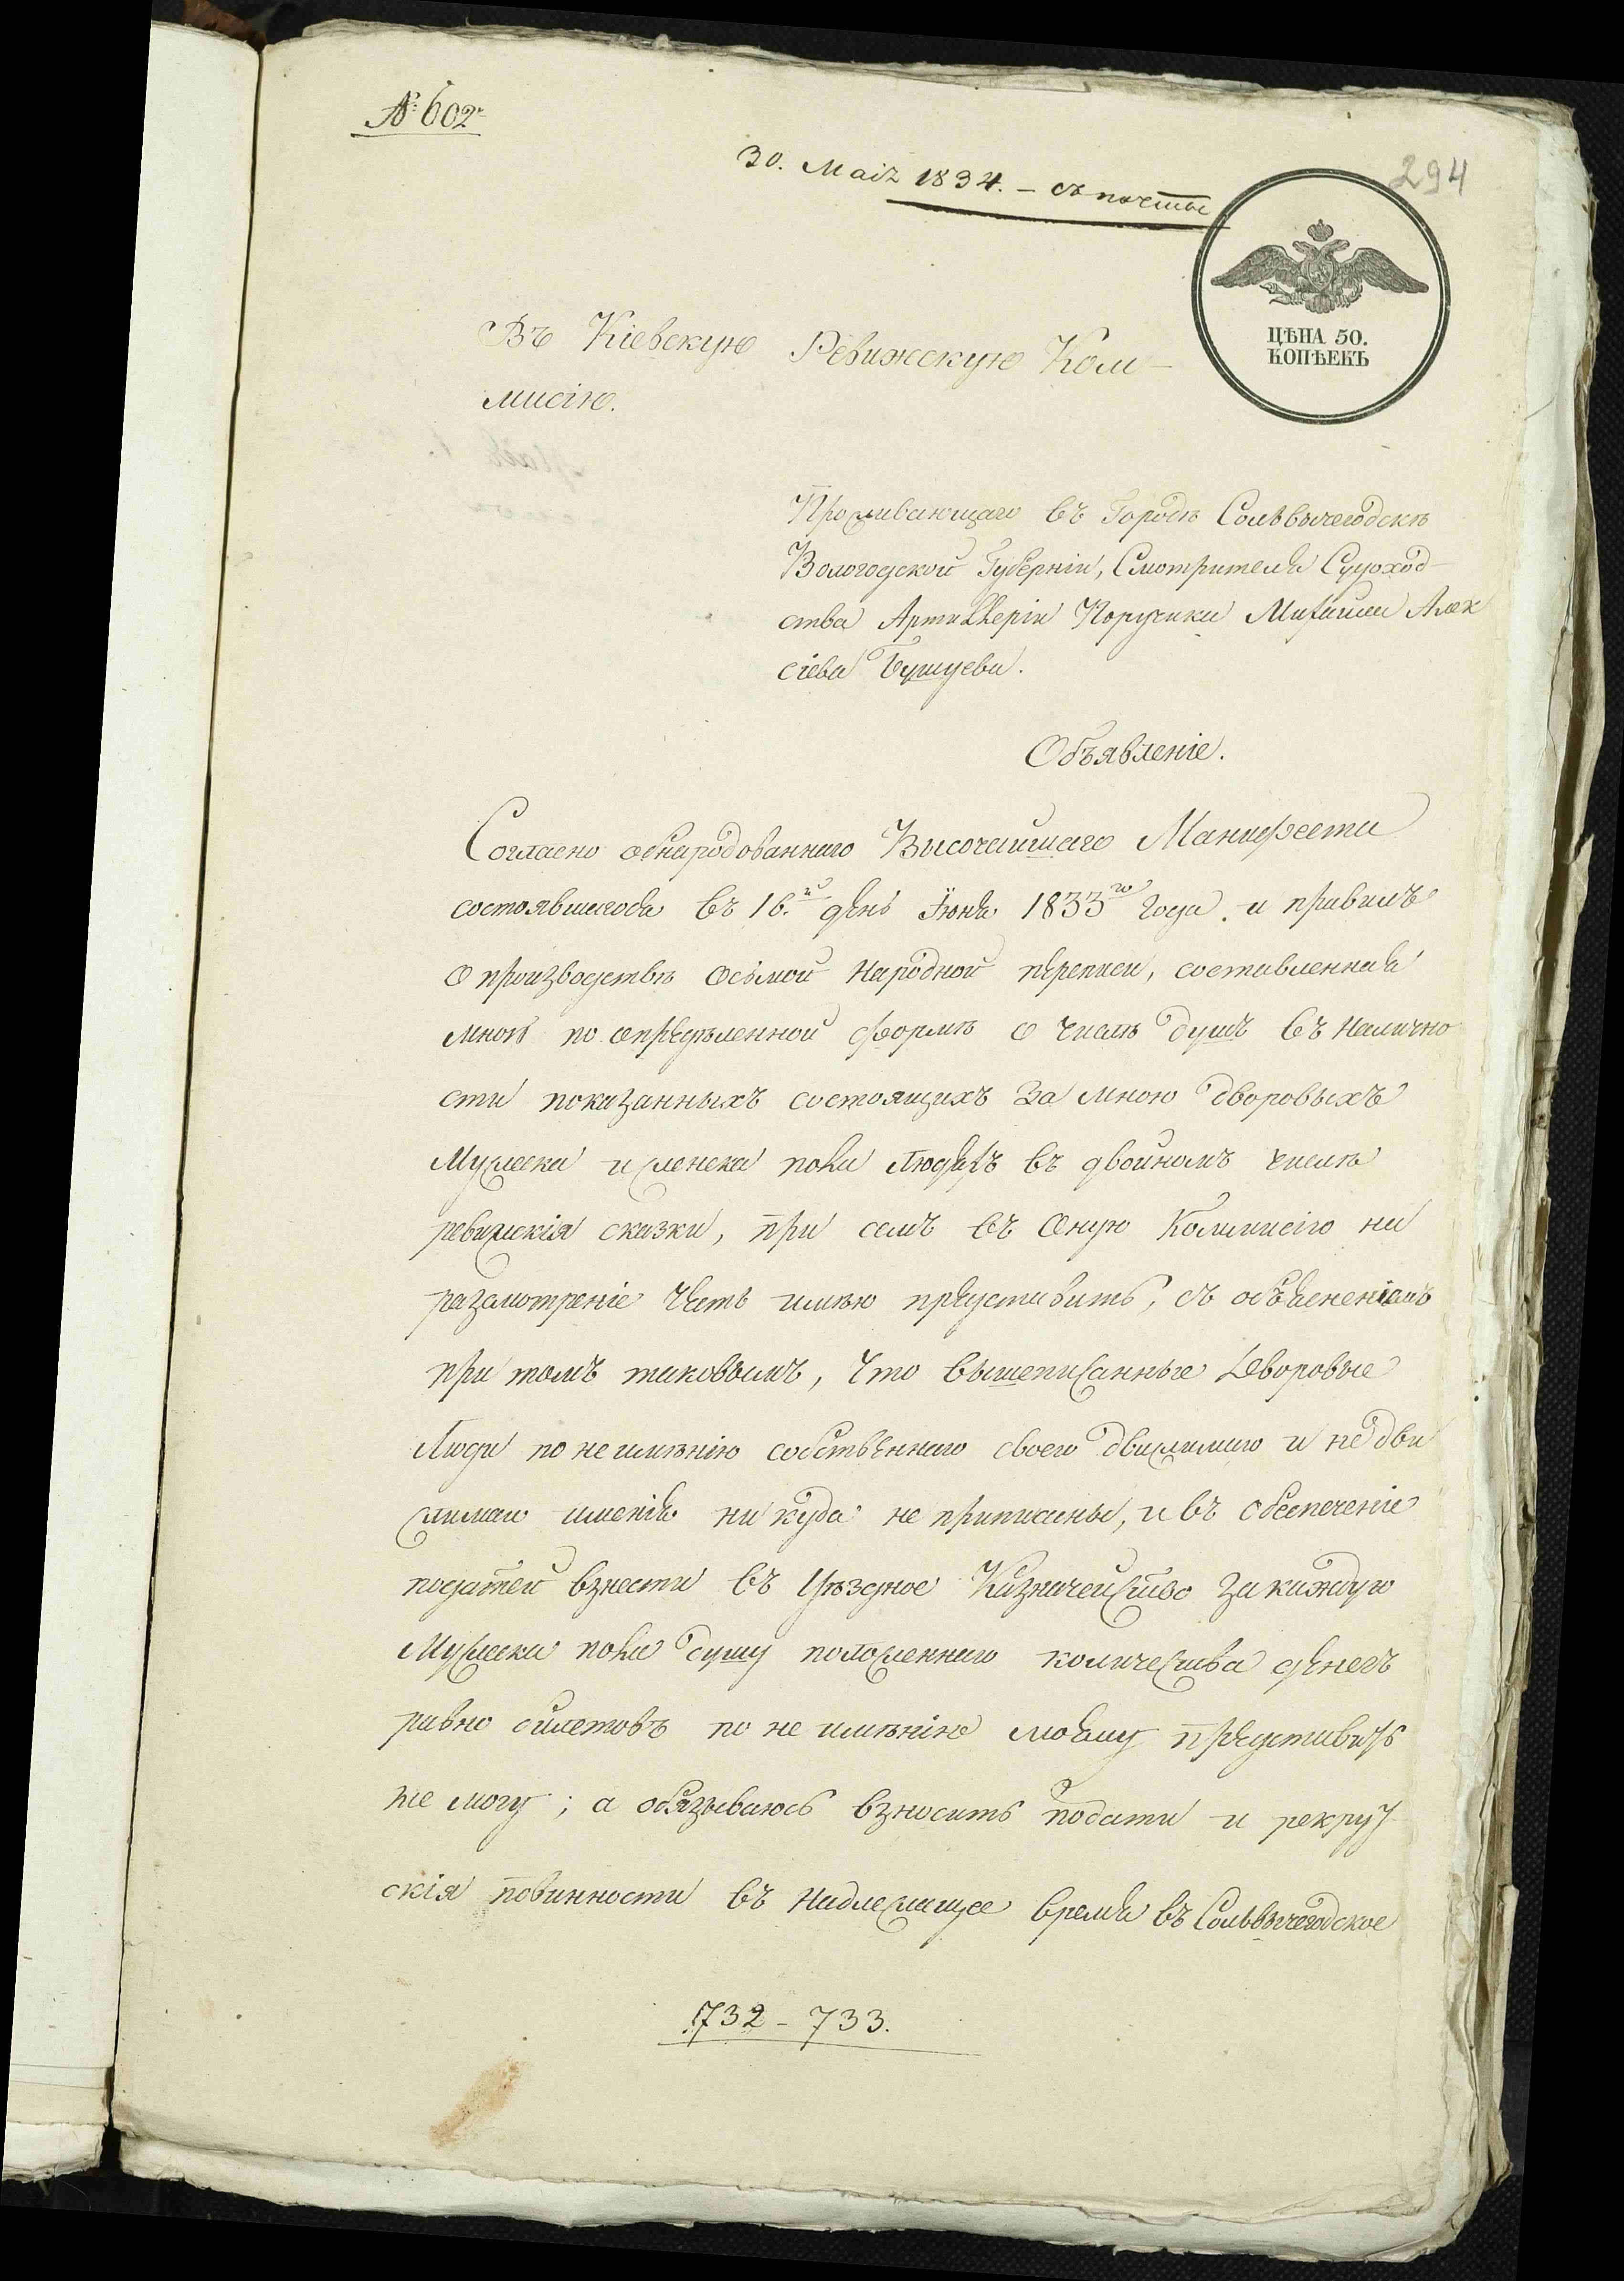 № 602
30. Маія 1834. – съ почты
294
ЦѢНА 50.
КОПѢЕКЪ
Въ Кіевскую Ревижскую Ком-
мисію.
Проживающаго въ Городѣ Сольвычегодскѣ
Вологодской Губерніи, Смотрителя Судоход-
ства Артиллеріи Порутчика Михаила Алек
сіева
Объявленіе.
Согласно обнародованнаго Высочайшаго Манифеста
состоявшагося въ 16.й день Іюня 1833го года. и правилъ
о производствѣ осьмой народной переписи, составленная
мною по опредѣленной формѣ о числѣ душъ въ налично
сти показанныхъ состоящихъ за мною дворовыхъ
Мужеска и женска пола людяхъ въ двойномъ числѣ
ревижскія сказки, при семъ въ оную Коммисію на
разсмотреніе честь имѣю представить, съ объясненіемъ
при томъ таковымъ, что вышеписанные дворовые
Люди по неимѣнію собственнаго своего движимаго и недви
жимаго именія никуда не приписаны, и въ обеспеченіе
податей взнести въ Уѣздное Казначейство за каждую
Мужеска пола душу положеннаго количества денегъ
равно билетовъ по не имѣнію моему представить
не могу; а обязываюсь взносить подати и рекрут
скія повинности въ надлежащее время въ Сольвычегодское
732 – 733.